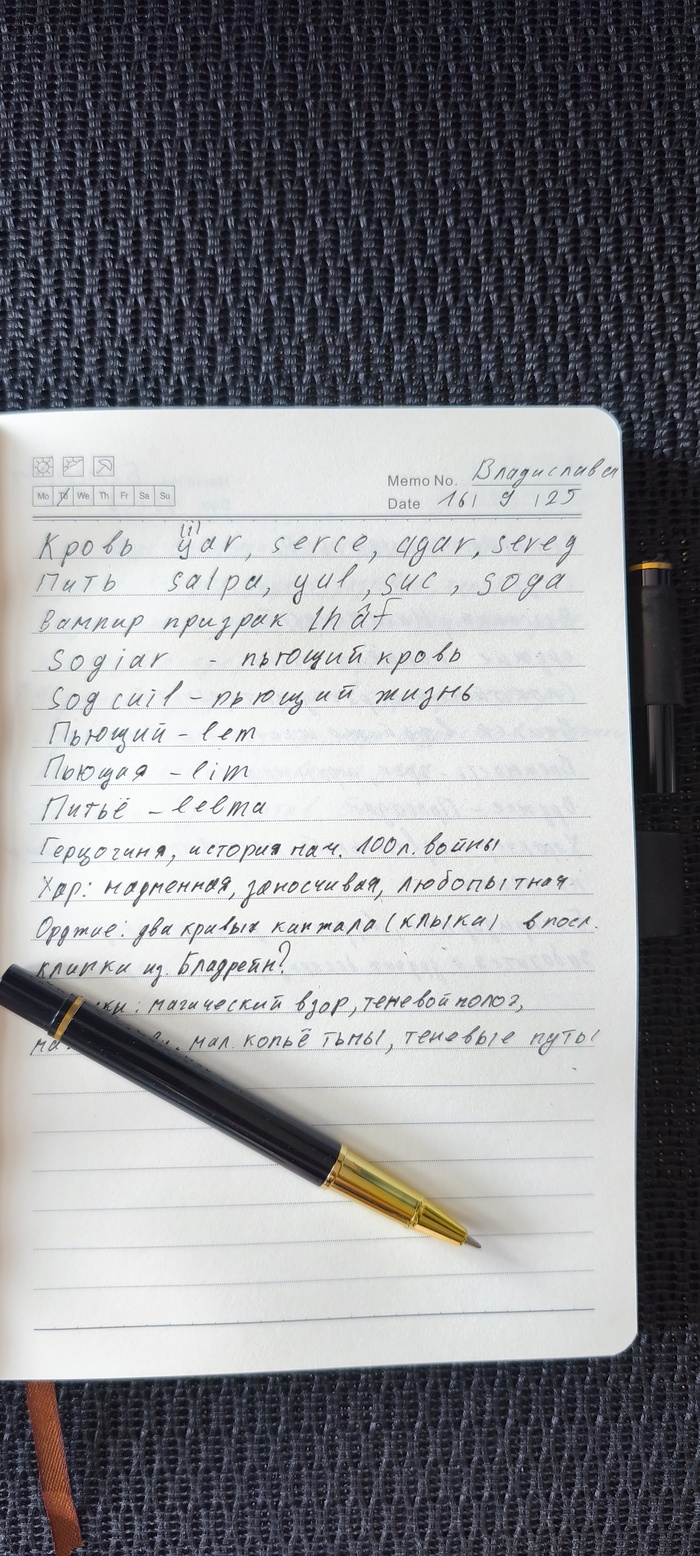 Memo No. Владислава
Mo Tu We Th Fr Sa Su
Date 16 / 9 / 25
(i)
Кровь yar, serce, agar, sereg
Пить salpa, yul, suc, soga
Вампир призрак lhâf
Sogiar - пьющий кровь
Sog cuil - рьющий жизнь
Пьющий - lem
Пьющая - lim
Питьё - leema
Герцогиня, история нач. 100л. войны
Хар: надменная, заносчивая, любопытная
Оружие: два кривых кинжала (клыка) впосл.
клинки из Бладрейн?
: магический взор, теневой полог,
мал. копьё тьмы, теневые путы